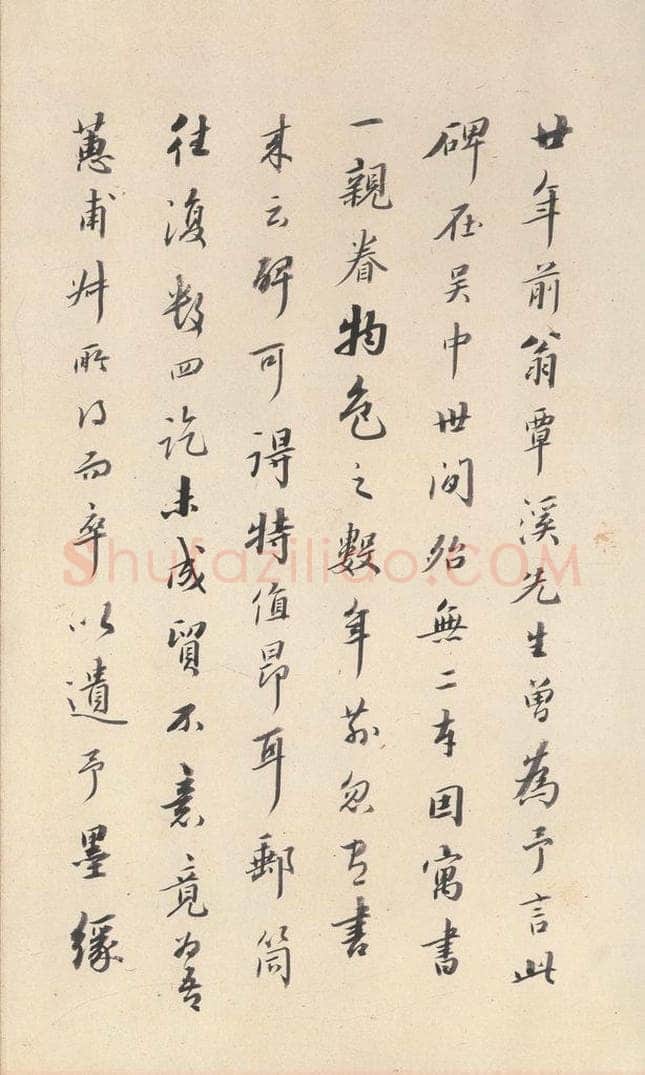 廿年前翁覃溪先生曾為予言此
碑在吳中世間殆無二本因寓書
一親眷物色之數年前忽有書
來云碑可得特值昂耳郵筒
往復數四訖未成貿不意竟為吾
蕙甫所得而卒以遺予墨緣
Shufaziliao.COM